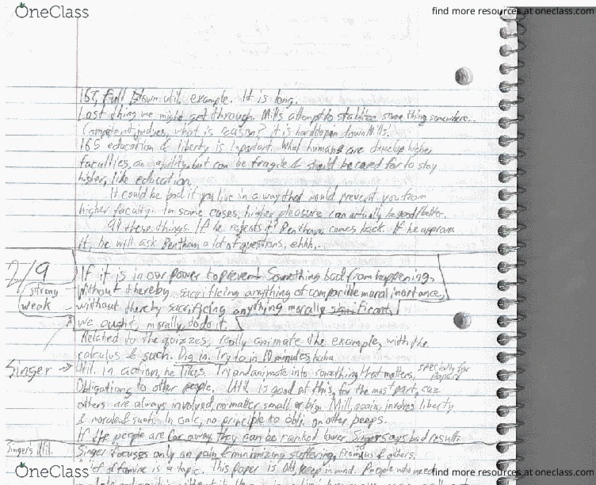 OneClass
find more resources at oneclass.com
157, full blown util. example. It is long.
Last thing we might get through. Mill's attempt to stabilize something somewhere..
Competent judges, what is reason? it is hard to pin down Mills.
165 education & liberty is important. What humans are develop higher
faculties, an ability, but can be fragile & should be cared for to stay
higher, like education.
It could be bad if you live in a way that would prevent you from
higher faculty. In some cases, higher pleasure can actually be good/better.
All these things. If he rejects it? Bentham comes back. If he approves
it, he will ask Bentham a lot of questions, ehhh...
2/9
If it is in our power to prevent something bad from happening,
strong
without thereby sacrificing anything of comparible moral inortance,
weak
without thereby sacrificing anything morally significant,
we ought, morally, do do it.
Related to the quizzes, really animate the example, with the
calculus & such. Dig in. Try to in 10 minutes haha
Singer → Util. in action, he likes. Try and animate into something that matters, specially for papers
Obligations to other people. Util is good at this, for the most part, cuz
others are always involved, no matter small or big. Mill, again, involves liberty
& moral and such. In , no principle to obli. on other peeps.
If the people are far away, they can be ranked over Singer says bad results
Singers Util. Singer focuses only on pain & minimizing suffering, from us & others.
Relief of famine is a topic. This paper is old, keep in mind. People who need
OneClass
find more resources at oneclass.com